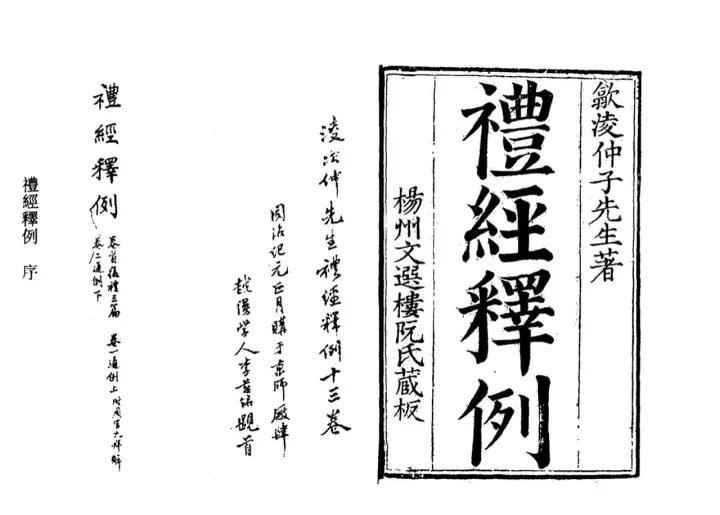 歙淩仲子先生著
禮經釋例
楊州文選樓阮氏藏板
淩次仲先生禮經釋例十三卷
同治紀元正月購于京師廠肆
越縵學人李慈銘題首
禮經釋例
卷首復禮三篇 卷一通例上附周官九拜解
卷二通例下
禮經釋例 序